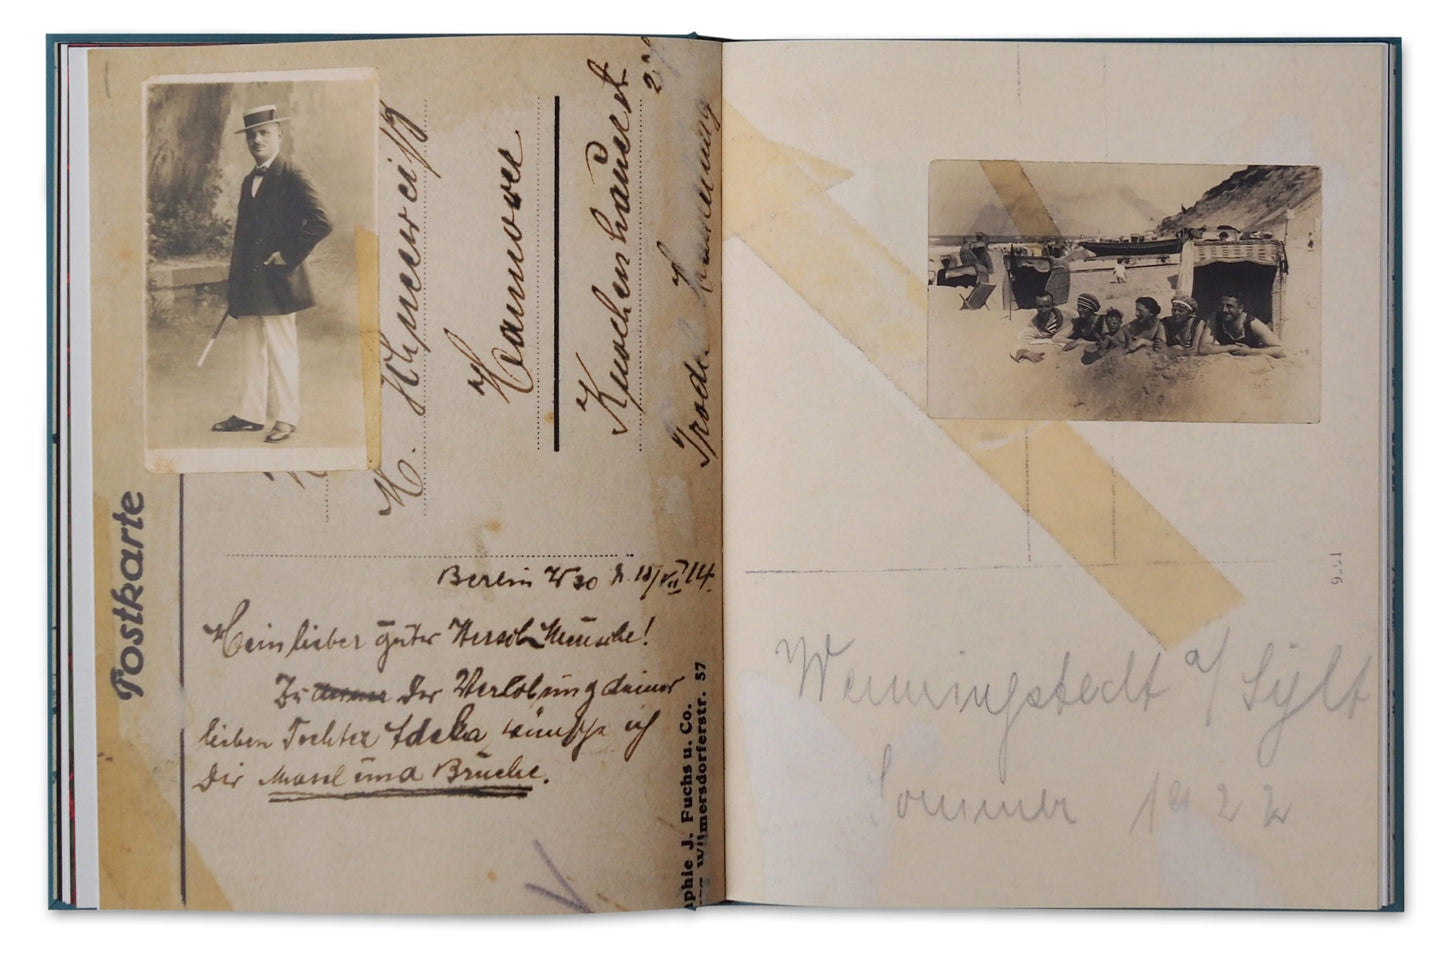 Postkarte
Hannover
Knochenhauerst
Berlin W30 d. 18/VII 14.
Mein lieber guter Hersch Mensche!
Zu der Verlobung deiner
lieben Tochter Adela wünsche ich
Dir Masel und Bruche.
aphie J. Fuchs u. Co.
Wilmersdorferstr. 57
Wenningstedt a/ Sylt
Sommer 1922